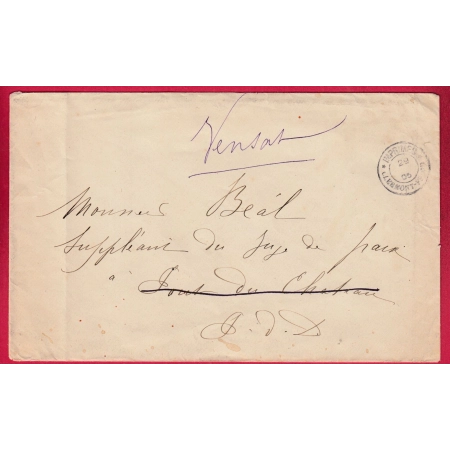 Vensat
Monsieur Béal
Suppléant du Juge de paix
à Pont du Chateau
P. d. D